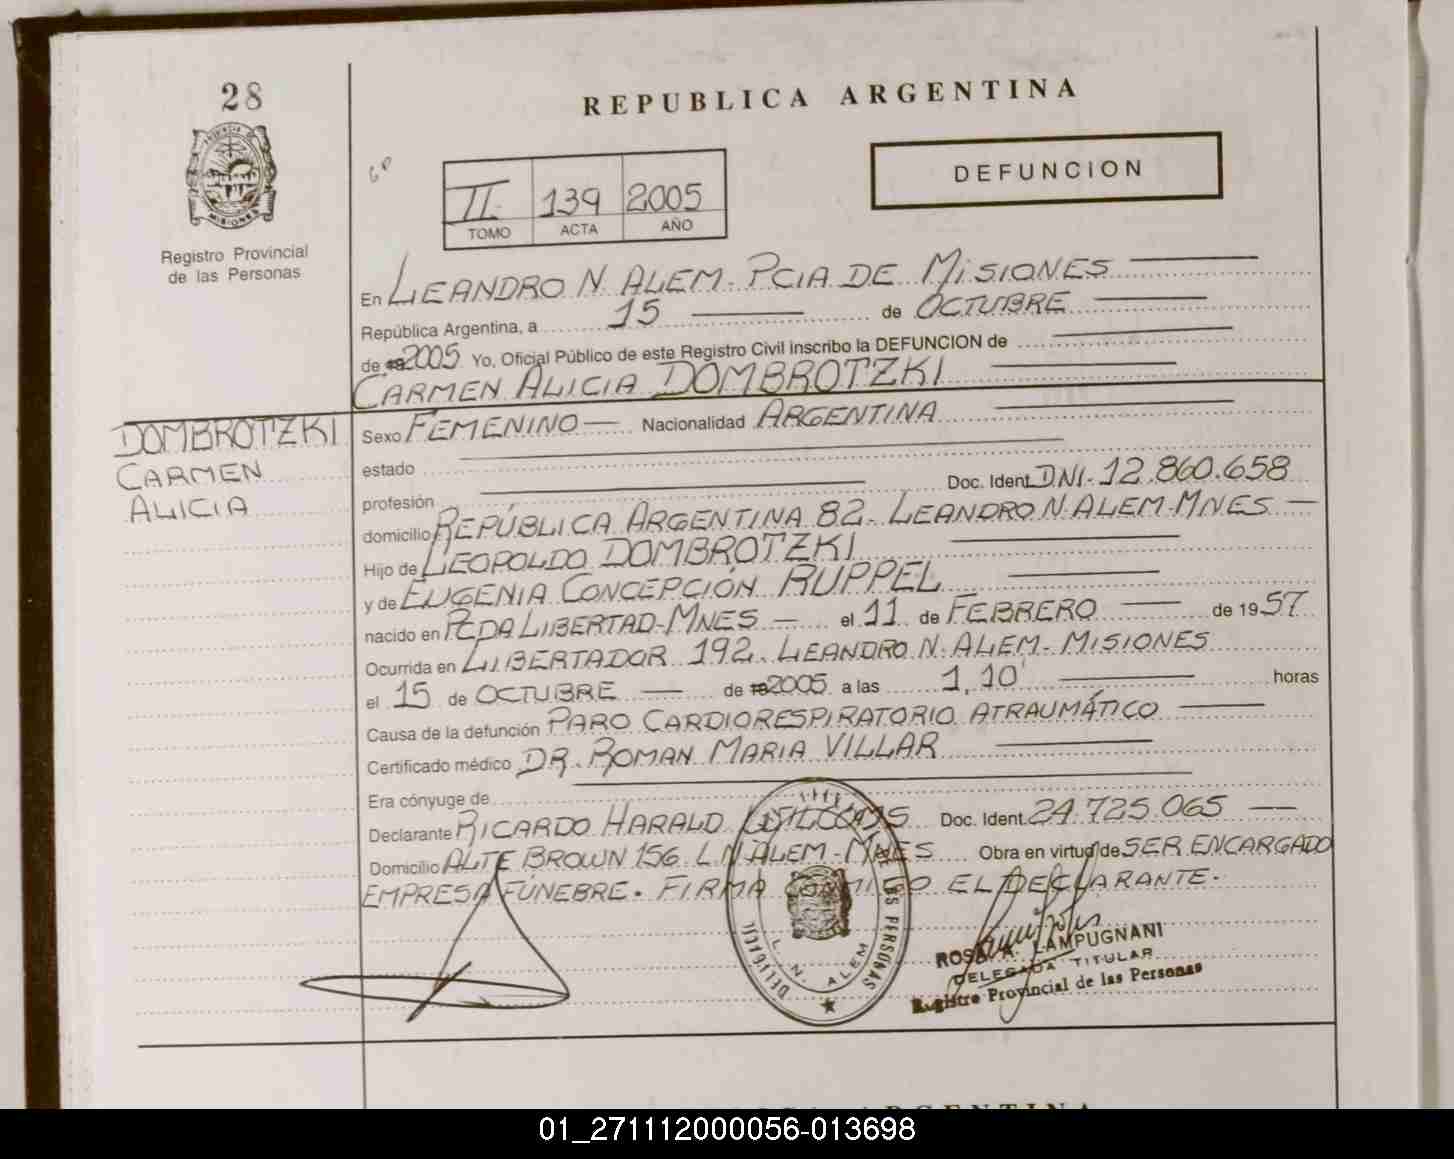 28
REPUBLICA ARGENTINA
DEFUNCION
II 139 2005
TOMO ACTA AÑO
PROVINCIA DE
MISIONES
Registro Provincial
de las Personas
En LEANDRO N. ALEM. PCIA DE MISIONES
República Argentina, a 15 de OCTUBRE
de 2005 Yo, Oficial Público de este Registro Civil inscribo la DEFUNCION de
CARMEN ALICIA DOMBROTZKI
DOMBROTZKI
CARMEN
ALICIA
Sexo FEMENINO Nacionalidad ARGENTINA
estado
profesión Doc. Ident. DNI. 12.860.658
domicilio REPÚBLICA ARGENTINA 82. LEANDRO N. ALEM-MNES
Hijo de LEOPOLDO DOMBROTZKI
y de EUGENIA CONCEPCIÓN RUPPEL
nacido en PCDA LIBERTAD-MNES el 11 de FEBRERO de 1957
Ocurrida en LIBERTADOR 192. LEANDRO N. ALEM. MISIONES
el 15 de OCTUBRE de 2005 a las 1,10' horas
Causa de la defunción PARO CARDIORESPIRATORIO ATRAUMÁTICO
Certificado médico DR. ROMAN MARIA VILLAR
Era cónyuge de
Declarante RICARDO HARALD Doc. Ident. 24.725.065
Domicilio ALTE BROWN 156 L.N.ALEM-MNES Obra en virtud de SER ENCARGADO
EMPRESA FÚNEBRE. FIRMA CONMIGO EL DECLARANTE.
DE LAS PERSONAS
L. N. ALEM
ROSA A. LAMPUGNANI
DELEGADA TITULAR
Registro Provincial de las Personas
01_271112000056-013698